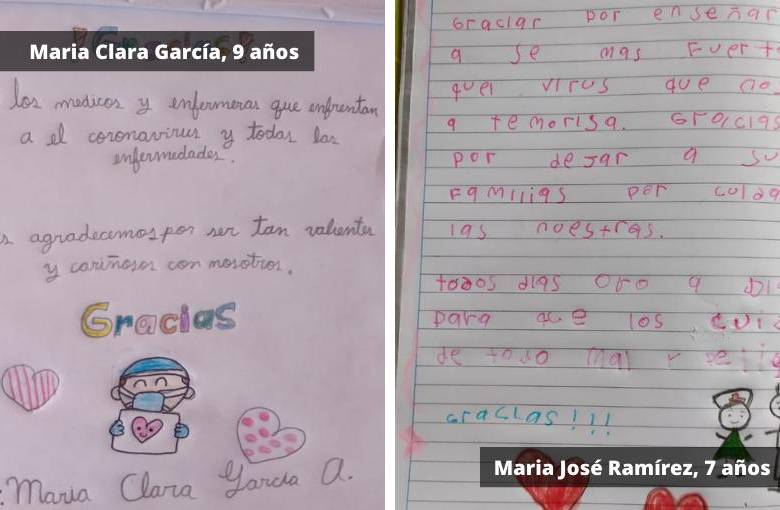 Maria Clara García, 9 años
los medicos y enfermeras que enfrentan
a el coronavirus y todas las
enfermedades.
agradecemos por ser tan valientes
y cariñosos con nosotros.
Gracias
Maria Clara García A.
Graciar por enseñar
a se mas Fuert
quel virus que no
a temorisa. Gracias
por dejar a su
Familias per cuida
las nuestras.
todos dias oro a Di
para que los cui
de todo mal
Gracias!!!
Maria José Ramírez, 7 años